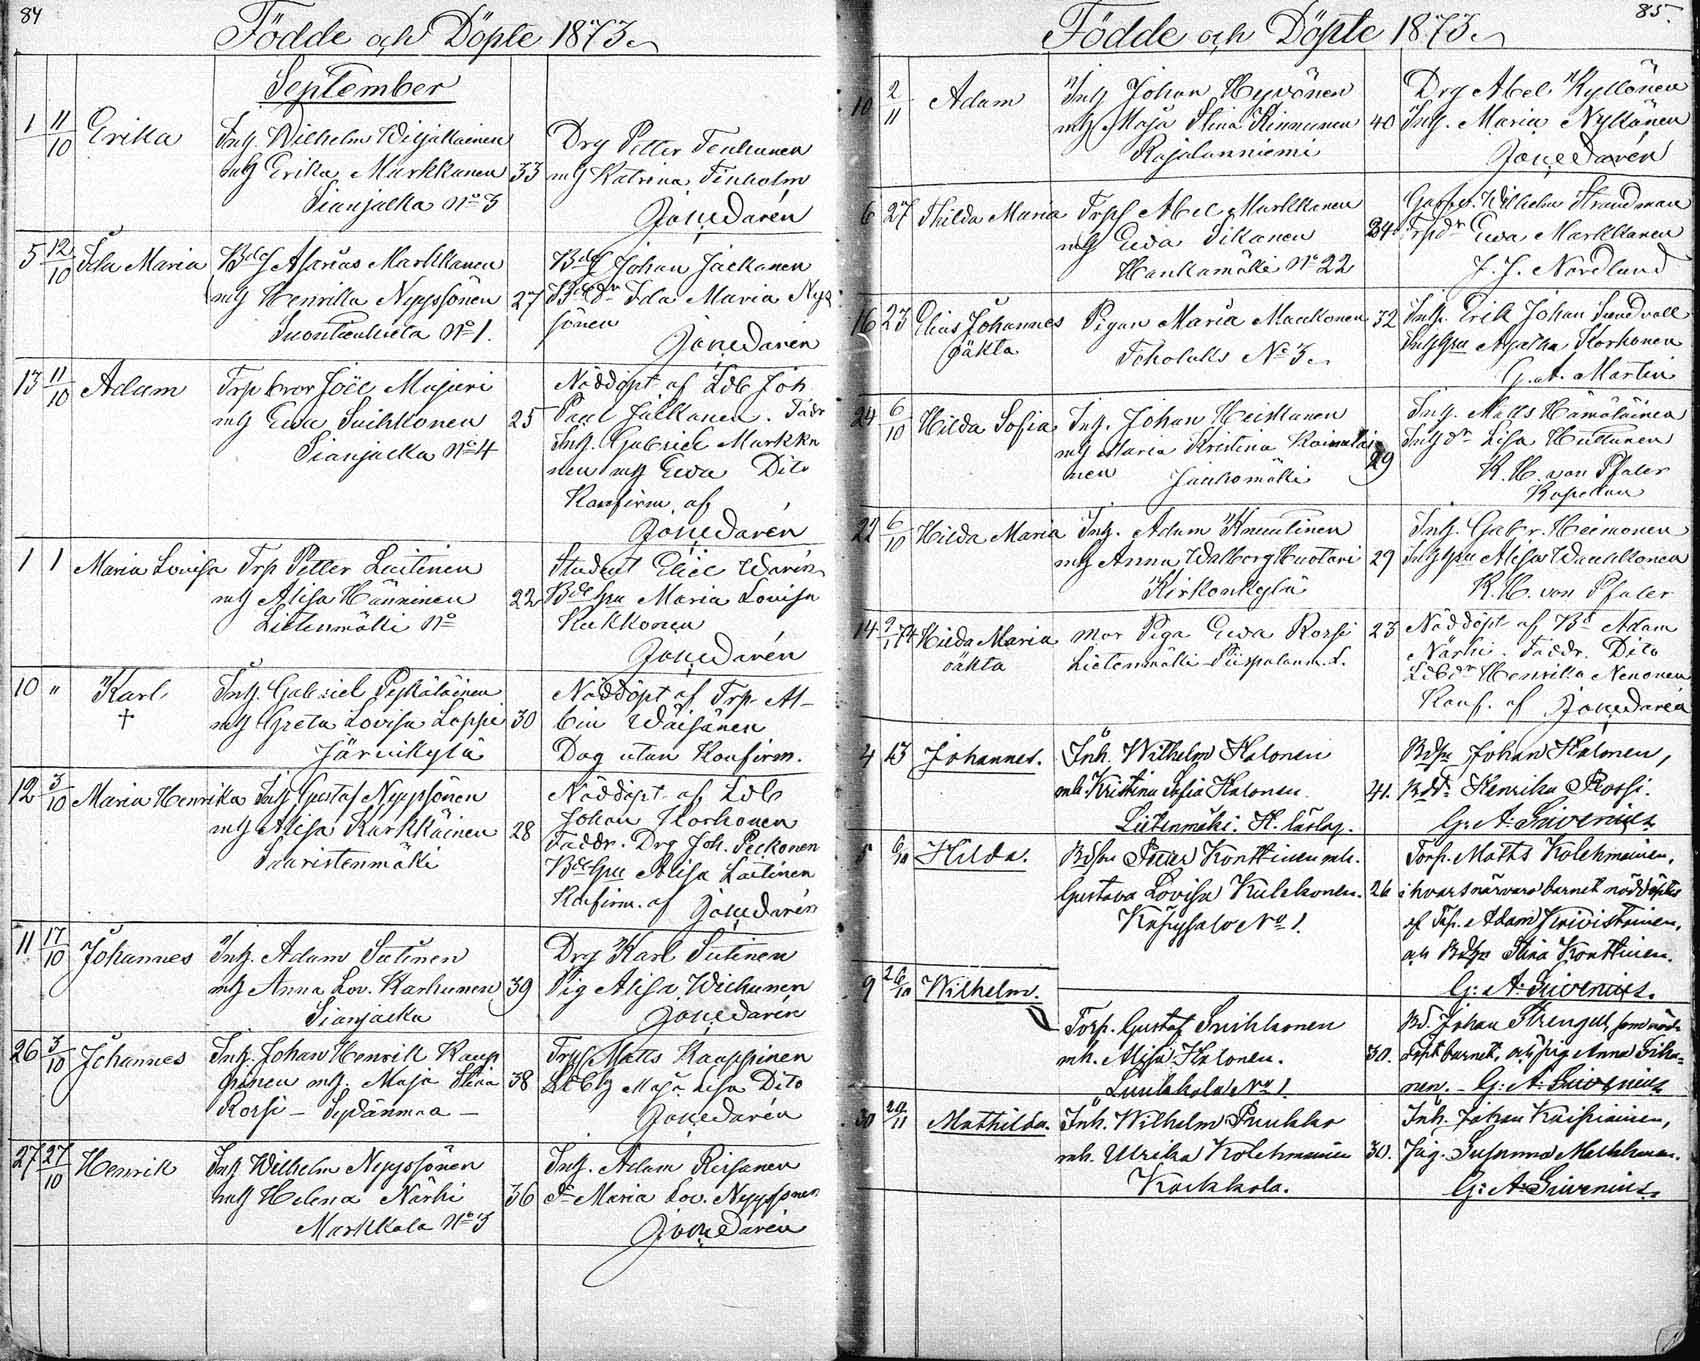 84
Födde och Döpte 1873.
September
1 11/10 Erika Inh. Wilhelm Wiljakainen
mh Erika Markkanen 33
Sianjalka No 3
Drg Petter Tenhunen
mh Katrina Finholm
Jon: Darén
5 12/10 Ida Maria Bdes Asarias Markkanen
mh Henrika Nyyssönen 27
Suontienhieta No 1.
Bdes Johan Jäskänen
Bdedr Ida Maria Nys
sönen
Jon: Darén
13 11/10 Adam Trp bror Joel Majuri
mh Ewa Suihkonen 25
Sianjalka No 4
Näddöpt af Ldb Joh
Paul Jalkanen. Fadr
Inh. Gabriel Markka
nen mh Ewa Dito
Konfirm. af
Jon: Darén
1 1 Maria Lovisa Trp Petter Laitinen
mh Alisa Hänninen 22
Lietenmäki No
Student Elice Warén
Bdehu Maria Lovisa
Kukkonen
Jon: Darén
10 " Karl Inh. Gabriel Pyykäläinen
† mh Greta Lovisa Loppi 30
Järvikylä
Näddöpt af Trp Al-
bin Wäisänen
Dog utan Konfirm.
12 3/10 Maria Henrika Inh Gustaf Nyyssönen
mh Alisa Karkkäinen 28
Saaristenmäki
Näddöpt af Ldb
Johan Korhonen
Faddr. Drg Joh. Pekonen
Bdehu Alisa Laitinen
Konfirm. af Jon: Darén
11 17/10 Johannes Inh. Adam Sutinen
mh Anna Lov. Karhunen 39
Sianjalka
Drg Karl Sutinen
Pig Alisa Wichunen
Jon: Darén
26 3/10 Johannes Inh. Johan Henrik Kaup
pinen mh. Maja Stina 38
Rossi – Sydänmaa –
Trps Matts Kauppinen
Maja Lisa Dito
Jon: Darén
27 27/10 Henrik Inh Wilhelm Nyyssönen
mh Helena Närhi 36
Markkala No 3
Inh. Adam Rissanen
dr Maria Lov. Nyyssönen
Jon: Darén
85.
Födde och Döpte 1873.
10 2/11 Adam Inh Johan Hyvönen
mh Maja Stina Kinnunen 40
Rajalanniemi
Drg Abel Kyllönen
Inh. Maria Kyllönen
Jon: Darén
6 27 Thilda Maria Trps Abel Markkanen
mh Ewa Sikanen 34
Hankamäki No 22
Wilhelm Strandman
Trpdr Ewa Markkanen
J. J. Nordlund
16 23 Elias Johannes Pigan Maria Maukonen 32
oäkta Toholaks No 3.
Inh. Erik Johan Sundvall
Agatha Korhonen
G. A. Martin
24 6/10 Hilda Sofia Inh. Johan Heiskanen
mh Maria Kristina Kainulai
nen Jauhomäki 29
Inh. Matts Hämäläinen
Inhdr Lisa Huttunen
K. H. von Pfaler
Kapellan
22 6/10 Hilda Maria Inh. Adam Knuutinen
mh Anna Walborg Huotari 29
Kirkonkylä
Inh. Gabr. Heimonen
Alisa Wauhkonen
K. H. von Pfaler
14 9/1 74 Hilda Maria mor Piga Ewa Rossi 23
oäkta Lietenmäki
Näddöpt af Bd Adam
Närhi. Faddr. Dito
Ldbdr Henrika Nenonen
Konf. af Jon: Darén
4 13 Johannes. Inh. Wilhelm Halonen
mh Kristina Sofia Halonen. 41.
Lietenmäki. H. låslag.
Bdsn Johan Halonen,
Bddr. Henrika Rossi.
G: A: Siwenius.
5 6/10 Hilda. Bdsn Petter Konttinen mh.
Gustava Lovisa Kukkonen. 26
Käpysalo No 1.
Torp. Matts Kolehmainen,
i hvars närvaro barnet näddöptes
af Trp. Adam Kiwistinen,
och Bdhu Stina Konttinen.
G: A: Siwenius.
9 26/10 Wilhelm.
Torp. Gustaf Suihkonen
mh. Alisa Halonen. 30.
Luukkola No 1.
Bd. Johan Strengell, som nöd-
döpt barnet, och pig Anna Sika-
nen. – G: A: Siwenius
30 20/11 Mathilda. Inh. Wilhelm Puukko
mh. Ulrika Kolehmainen 30.
Koikkola.
Inh. Johan Knispiainen,
Pig. Susanna Makkonen.
G: A: Siwenius.